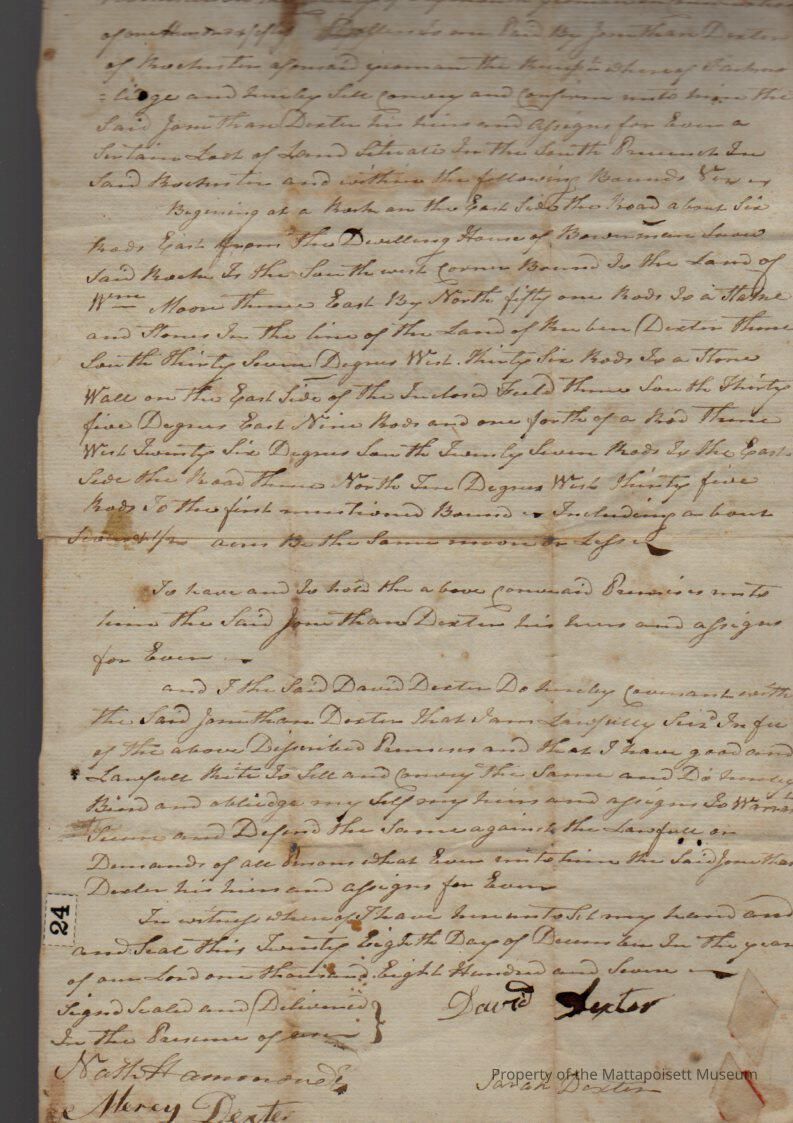 of one hundred & fifty Dollars in one Paid By Jonathan Dexter
of Rochester aforsaid yeoman the Receipt whereof I acknow
=lidge and hereby Sell Convey and Confirm unto him the
Said Jonathan Dexter his hiers and assigns for Ever a
Sertain Lott of Land Situate In the South Precinct In
Said Rochester and within the following Bounds Viz
Begining at a Rock on the East Side the Road about Six
Rods East from the Dwelling House of Bowerman Snow
Said Rock Is the South west Corner Bound To the Land of
Wm Moor thence East By North fifty one Rods To a Stake
and Stones In the line of the Land of Reuben Dexter thence
South Thirty Seven Degrees West Thirty Six Rods To a Stone
Wall on the East Side of the Inclosed Feild thence South Thirty
five Degrees East Nine Rods and one forth of a Rod thence
West Twenty Six Degrees South Twenty Seven Rods To the East
Side the Road thence North Ten Degrees West Thirty five
Rods To the first mentioned Bound Including about
1/2 acres Be the Same moore or Less
To have and To hold the above Conveaid Premises unto
him the Said Jonathan Dexter his hiers and assigns
for Ever
and I the Said David Dexter Do hereby Covenant with
the Said Jonathan Dexter That I am Lawfully Siez'd In fee
of the above Discribed Premises and that I have good and
Lawfull Rite To Sell and Convey the Same and Do hereby
Bind and oblidge my Self my hiers and assigns To
Secure and Defend the Same against the Lawfull or
Demands of all Persons what Ever unto him the Said Jonathan
Dexter his hiers and assigns for Ever
In witness whereof I have hereunto Set my hand and
and Seal this Twenty Eighth Day of December In the year
of our Lord one thousand Eight Hundred and Seven
Signd Sealed and Delivered
In the Presence of
David Dexter
Nath Hammond
Sarah Dexter
Mercy Dexter
24
Property of the Mattapoisett Museum